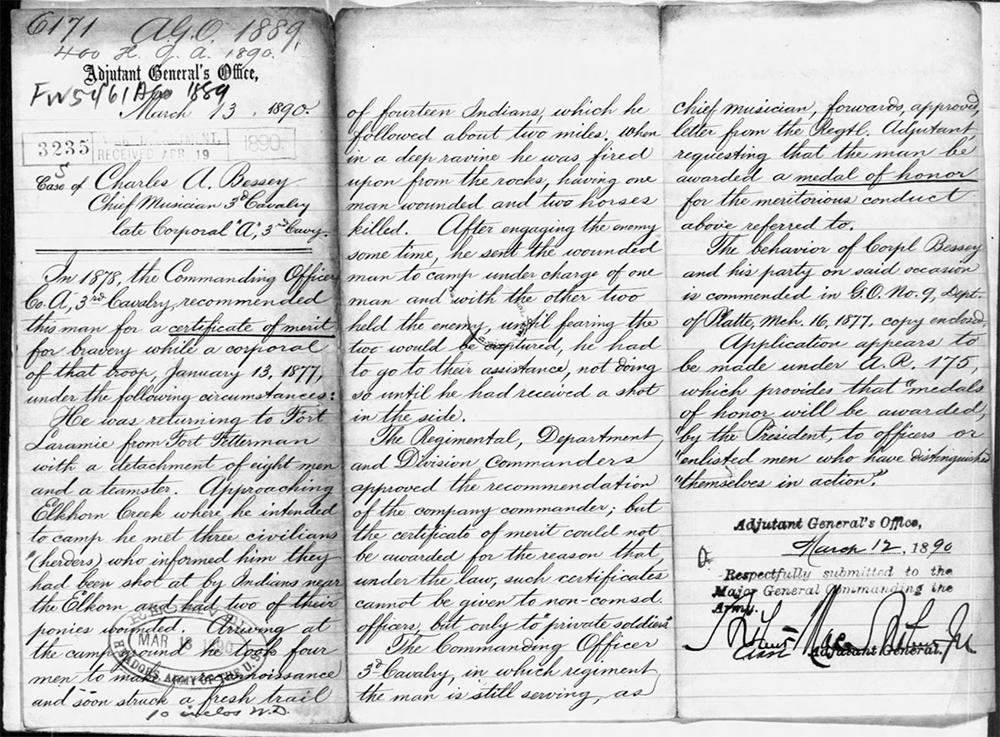 6171 A.G.O. 1889.
400 H. Q. A. 1890.
Adjutant General's Office,
FW5461 AGO 1889
March 13, 1890.
3235
DEPARTMENT
RECEIVED APR 19
1890.
5
Case of Charles A. Bessey
Chief Musician 3d Cavalry
late Corporal "A", 3rd Cavy.
In 1878, the Commanding Officer
Co. A, 3rd Cavalry, recommended
this man for a certificate of merit
for bravery while a corporal
of that troop, January 13, 1877,
under the following circumstances:
He was returning to Fort
Laramie from Fort Fetterman
with a detachment of eight men
and a teamster. Approaching
Elkhorn Creek where he intended
to camp he met three civilians
(herders) who informed him they
had been shot at by Indians near
the Elkorn and had two of their
ponies wounded. Arriving at
the camp ground he took four
men to make reconnoissance
and soon struck a fresh trail
MAR 13 1890
HEADQRS. ARMY OF THE U.S.
10 inclos W.D.
of fourteen Indians, which he
followed about two miles. When
in a deep ravine he was fired
upon from the rocks, having one
man wounded and two horses
killed. After engaging the enemy
some time, he sent the wounded
man to camp under charge of one
man and with the other two
held the enemy, until fearing the
two would be captured, he had
to go to their assistance, not doing
so until he had received a shot
in the side.
The Regimental, Department
and Division Commanders
approved the recommendation
of the company commander; but
the certificate of merit could not
be awarded for the reason that
under the law, such certificates
cannot be given to non-comsd.
officers, but only to private soldiers.
The Commanding Officer
3d Cavalry, in which regiment
the man is still serving, as
chief musician, forwards, approved,
letter from the Regtl. Adjutant,
requesting that the man be
awarded a medal of honor
for the meritorious conduct
above referred to.
The behavior of Corpl Bessey
and his party on said occasion
is commended in G.O. No. 9, Dept.
of Platte, Mch. 16, 1877, copy enclosed.
Application appears to
be made under A.R. 175,
which provides that "medals
of honor will be awarded,
"by the President, to officers or
"enlisted men who have distinguished
"themselves in action."
Adjutant General's Office,
March 12, 1890
Respectfully submitted to the
Major General Commanding the
Army.
Adjutant General.